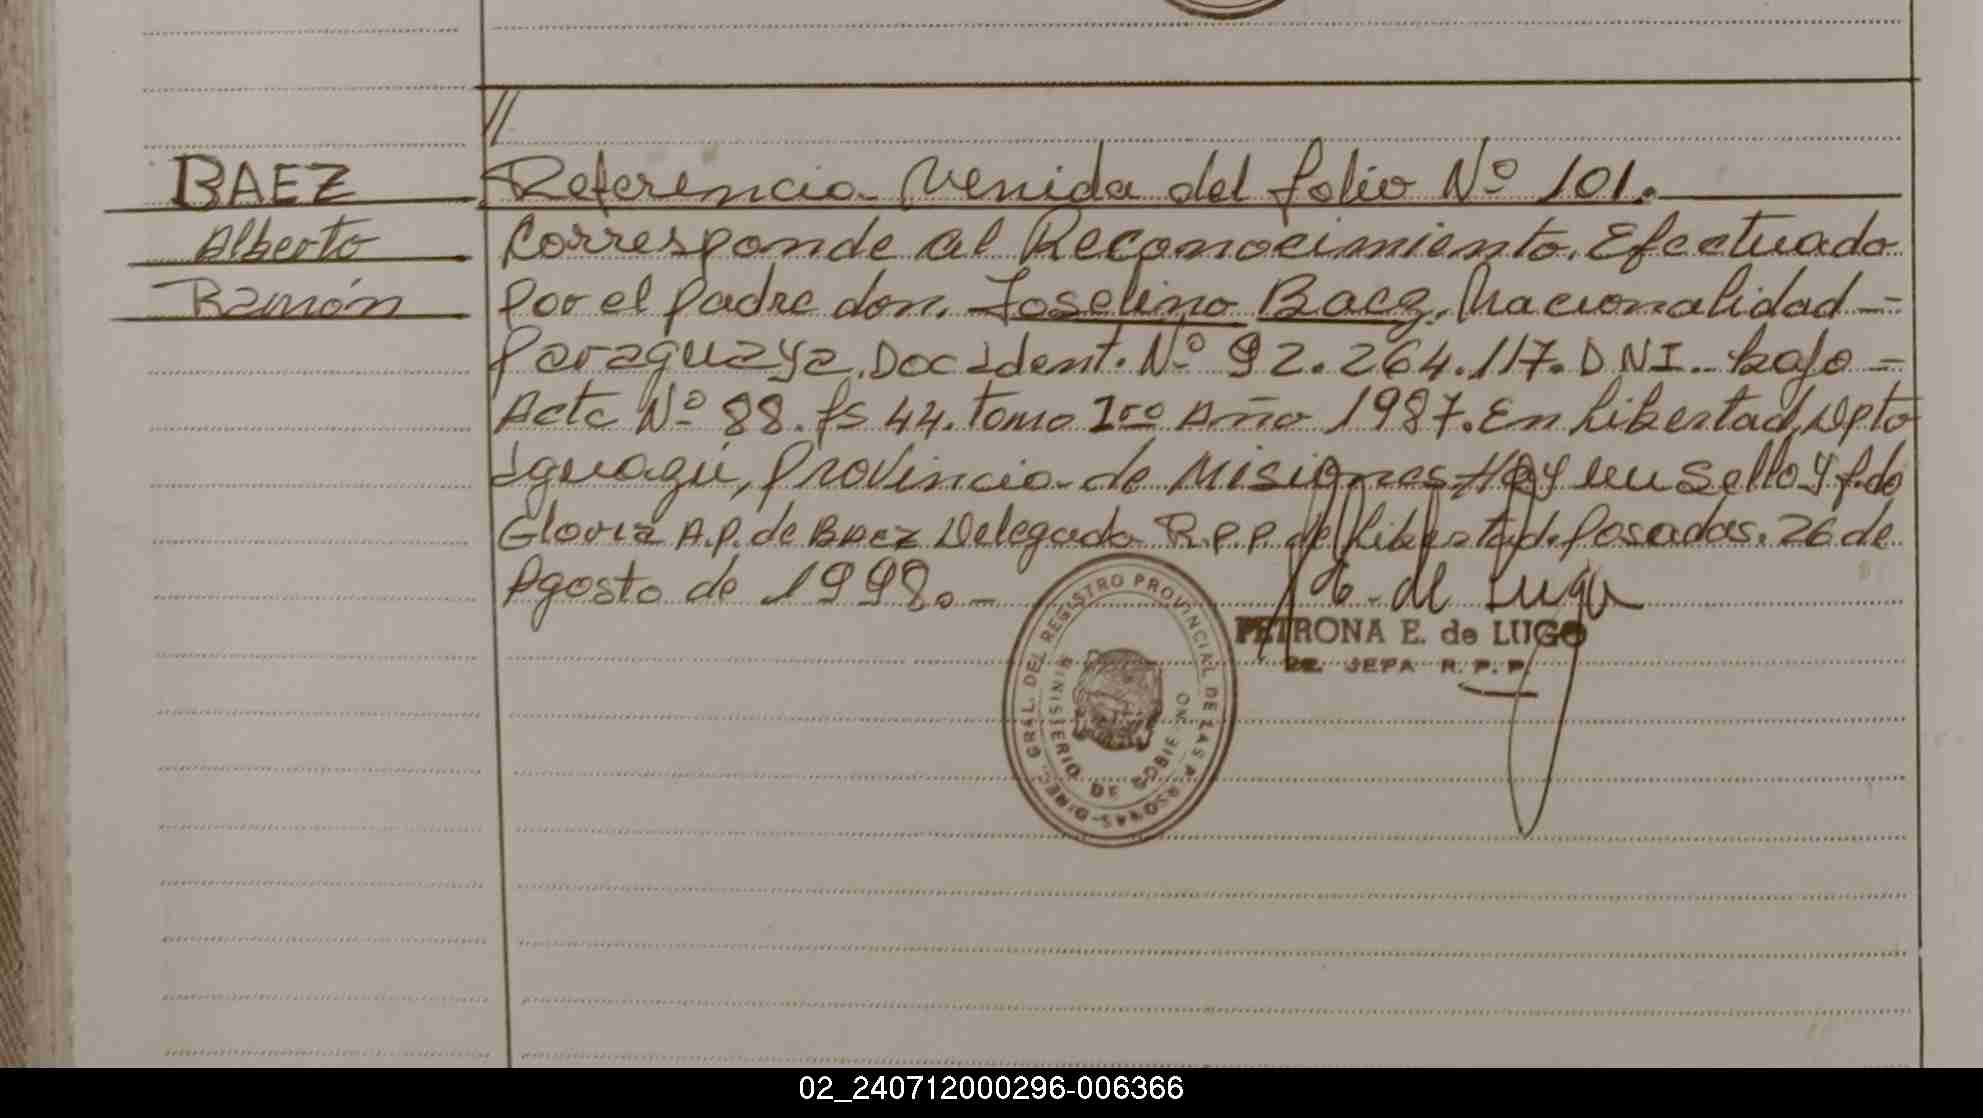 //
BAEZ
Alberto
Ramón
Referencia Venida del folio Nº 101.
Corresponde al Reconocimiento. Efectuado
por el padre don. Joselino Baez. Nacionalidad -=
Paraguaya. Doc Ident. Nº 92.264.117. DNI.- bajo =
Acta Nº 88. fs 44. tomo 1ro Año 1987. En Libertad, Dpto
Iguazú, Provincia de Misiones. Hay un Sello y f.do
Gloria A.P. de BAEZ Delegada R.P.P. de Libertad. Posadas. 26 de
Agosto de 1998.-
de Lugo
PETRONA E. de LUGO
JEFA R. P. P.
DIREC. GRAL. DEL REGISTRO PROVINCIAL DE LAS PERSONAS-
MINISTERIO DE GOBIERNO
02_240712000296-006366